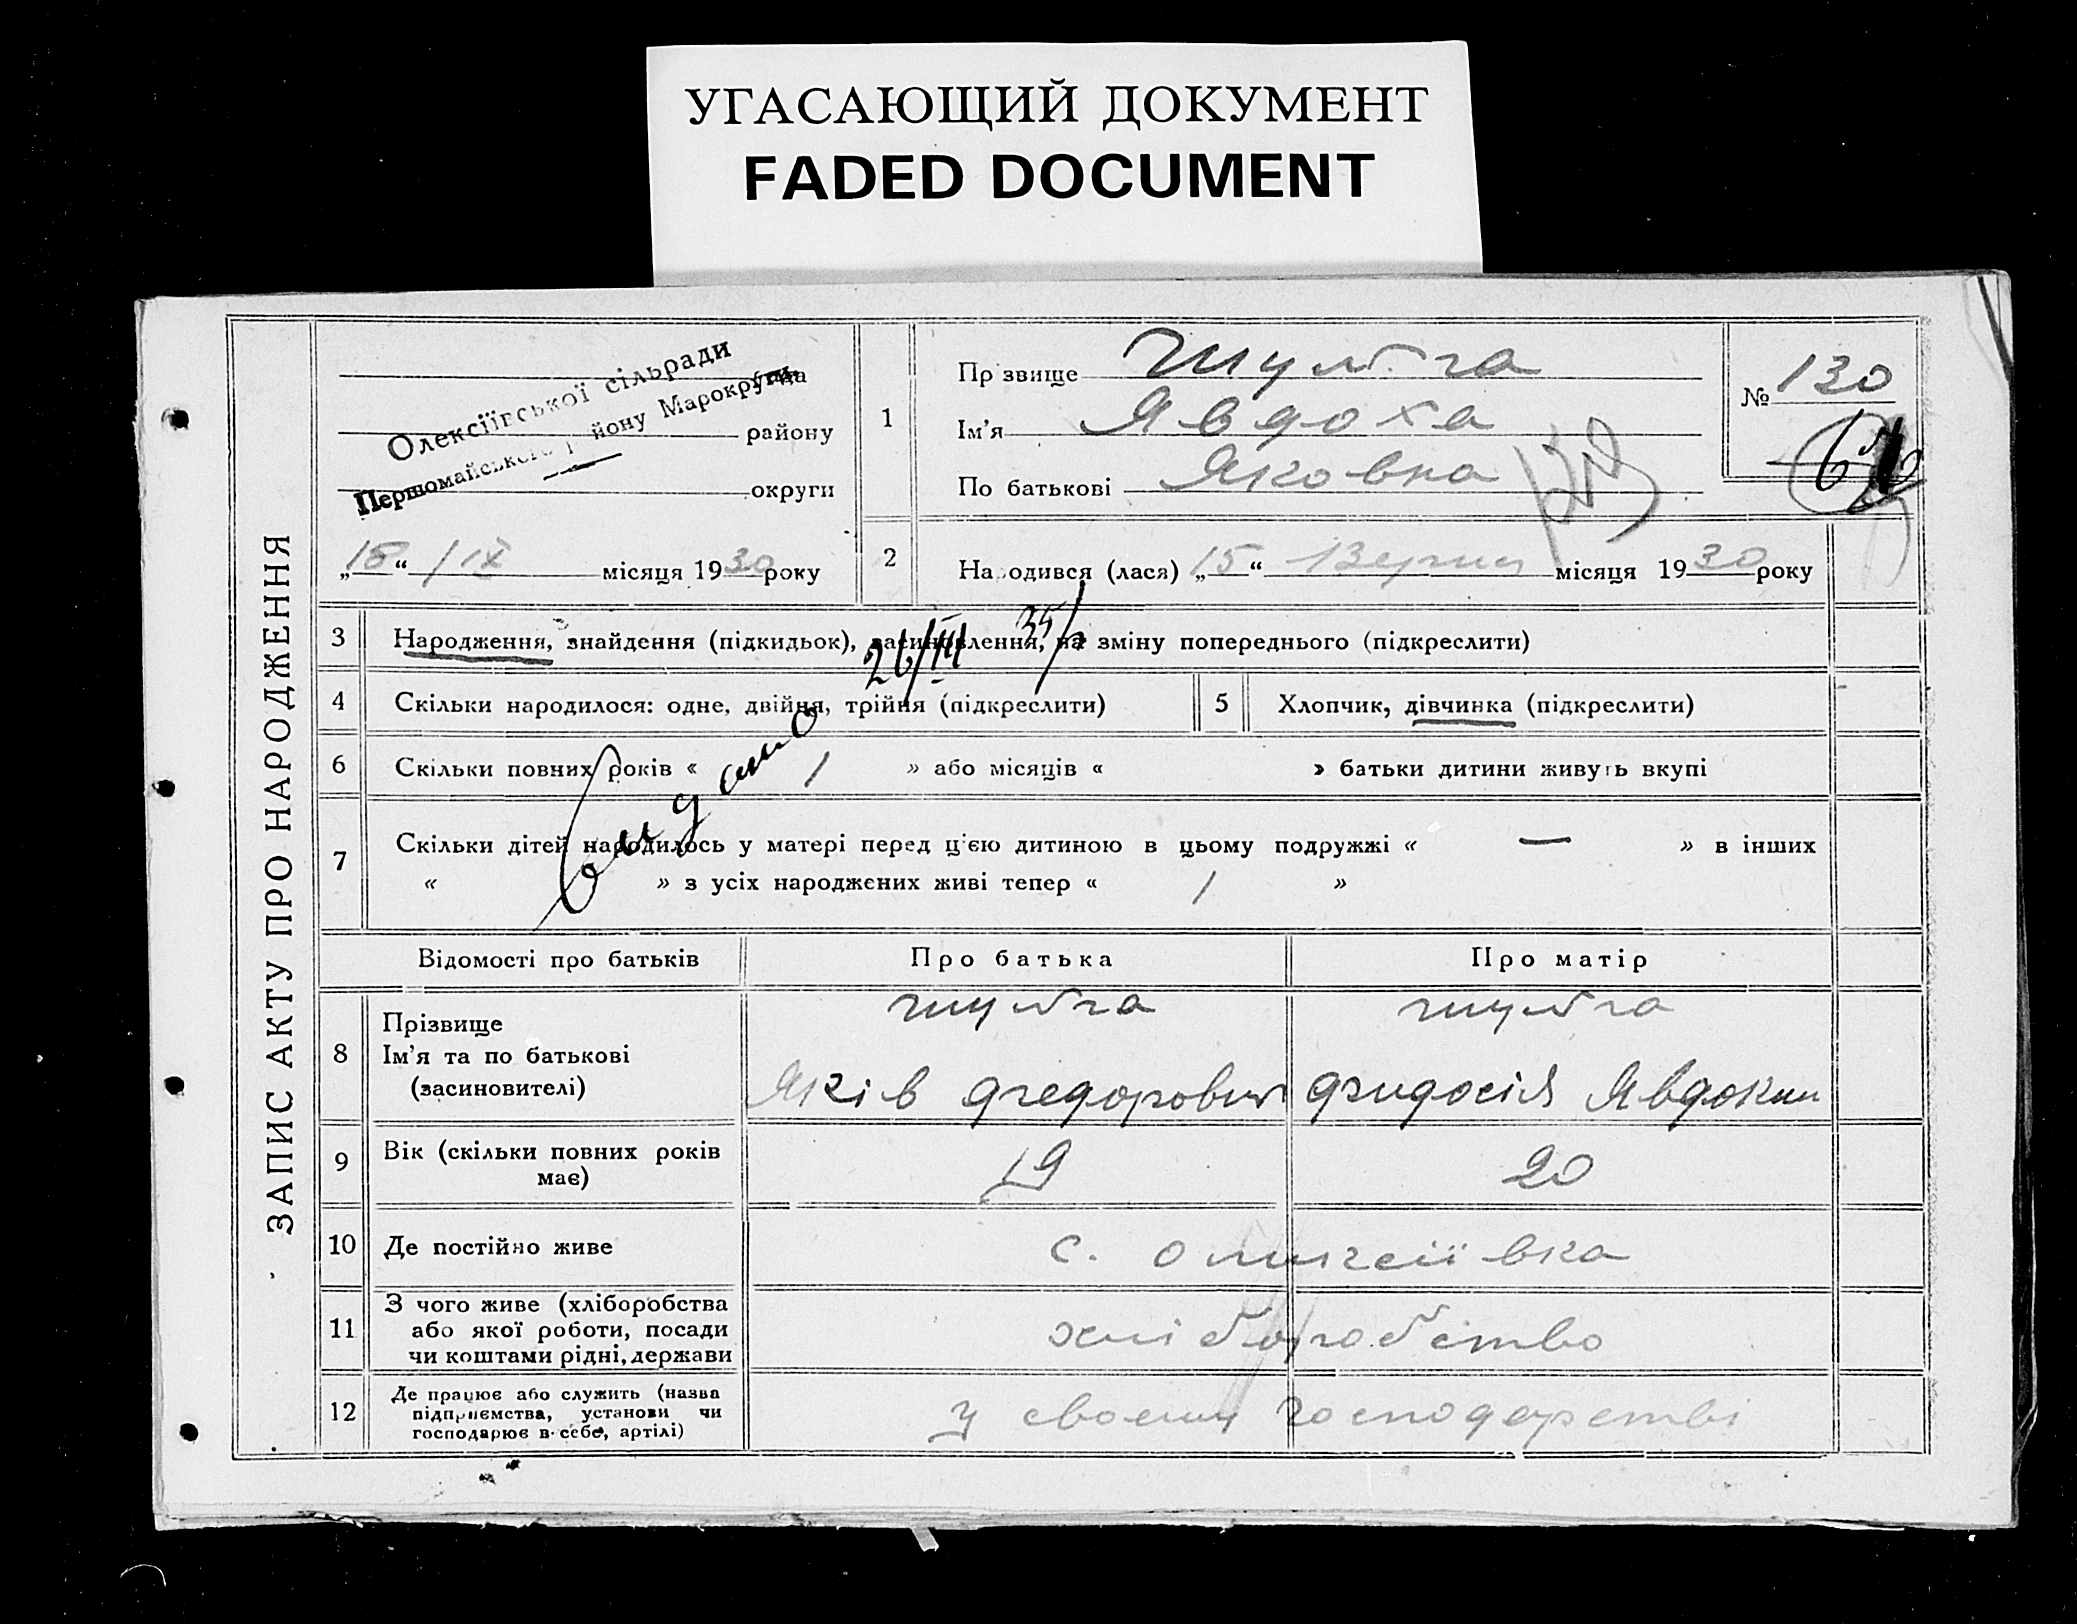 УГАСАЮЩИЙ ДОКУМЕНТ
FADED DOCUMENT
ЗАПИС АКТУ ПРО НАРОДЖЕННЯ
Олексіївської сільради
Першомайського району Марокруги
району
округи
„18“ / IX місяця 1930 року
1
Прізвище Шульга
Ім'я Явдоха
По батькові Яковна
№ 130
2
Народився (лася) „15“ Вересня місяця 1930 року
3 Народження, знайдення (підкидьок), засиновлення, на зміну попереднього (підкреслити)
26/III 35
4 Скільки народилося: одне, двійня, трійня (підкреслити)
5 Хлопчик, дівчинка (підкреслити)
6 Скільки повних років « 1 » або місяців « » батьки дитини живуть вкупі
видано
7 Скільки дітей народилось у матері перед цією дитиною в цьому подружжі « — » в інших
« » з усіх народжених живі тепер « 1 »
Відомості про батьків Про батька Про матір
8 Прізвище
Ім'я та по батькові
(засиновителі)
Шульга Шульга
Яків Федорович Фидосія Явдоким
9 Вік (скільки повних років
має)
19 20
10 Де постійно живе с. Олексіївка
11 З чого живе (хліборобства
або якої роботи, посади
чи коштами рідні, держави
хліборобство
12 Де працює або служить (назва
підприємства, установи чи
господарює в себе, артілі)
у своему господарстві